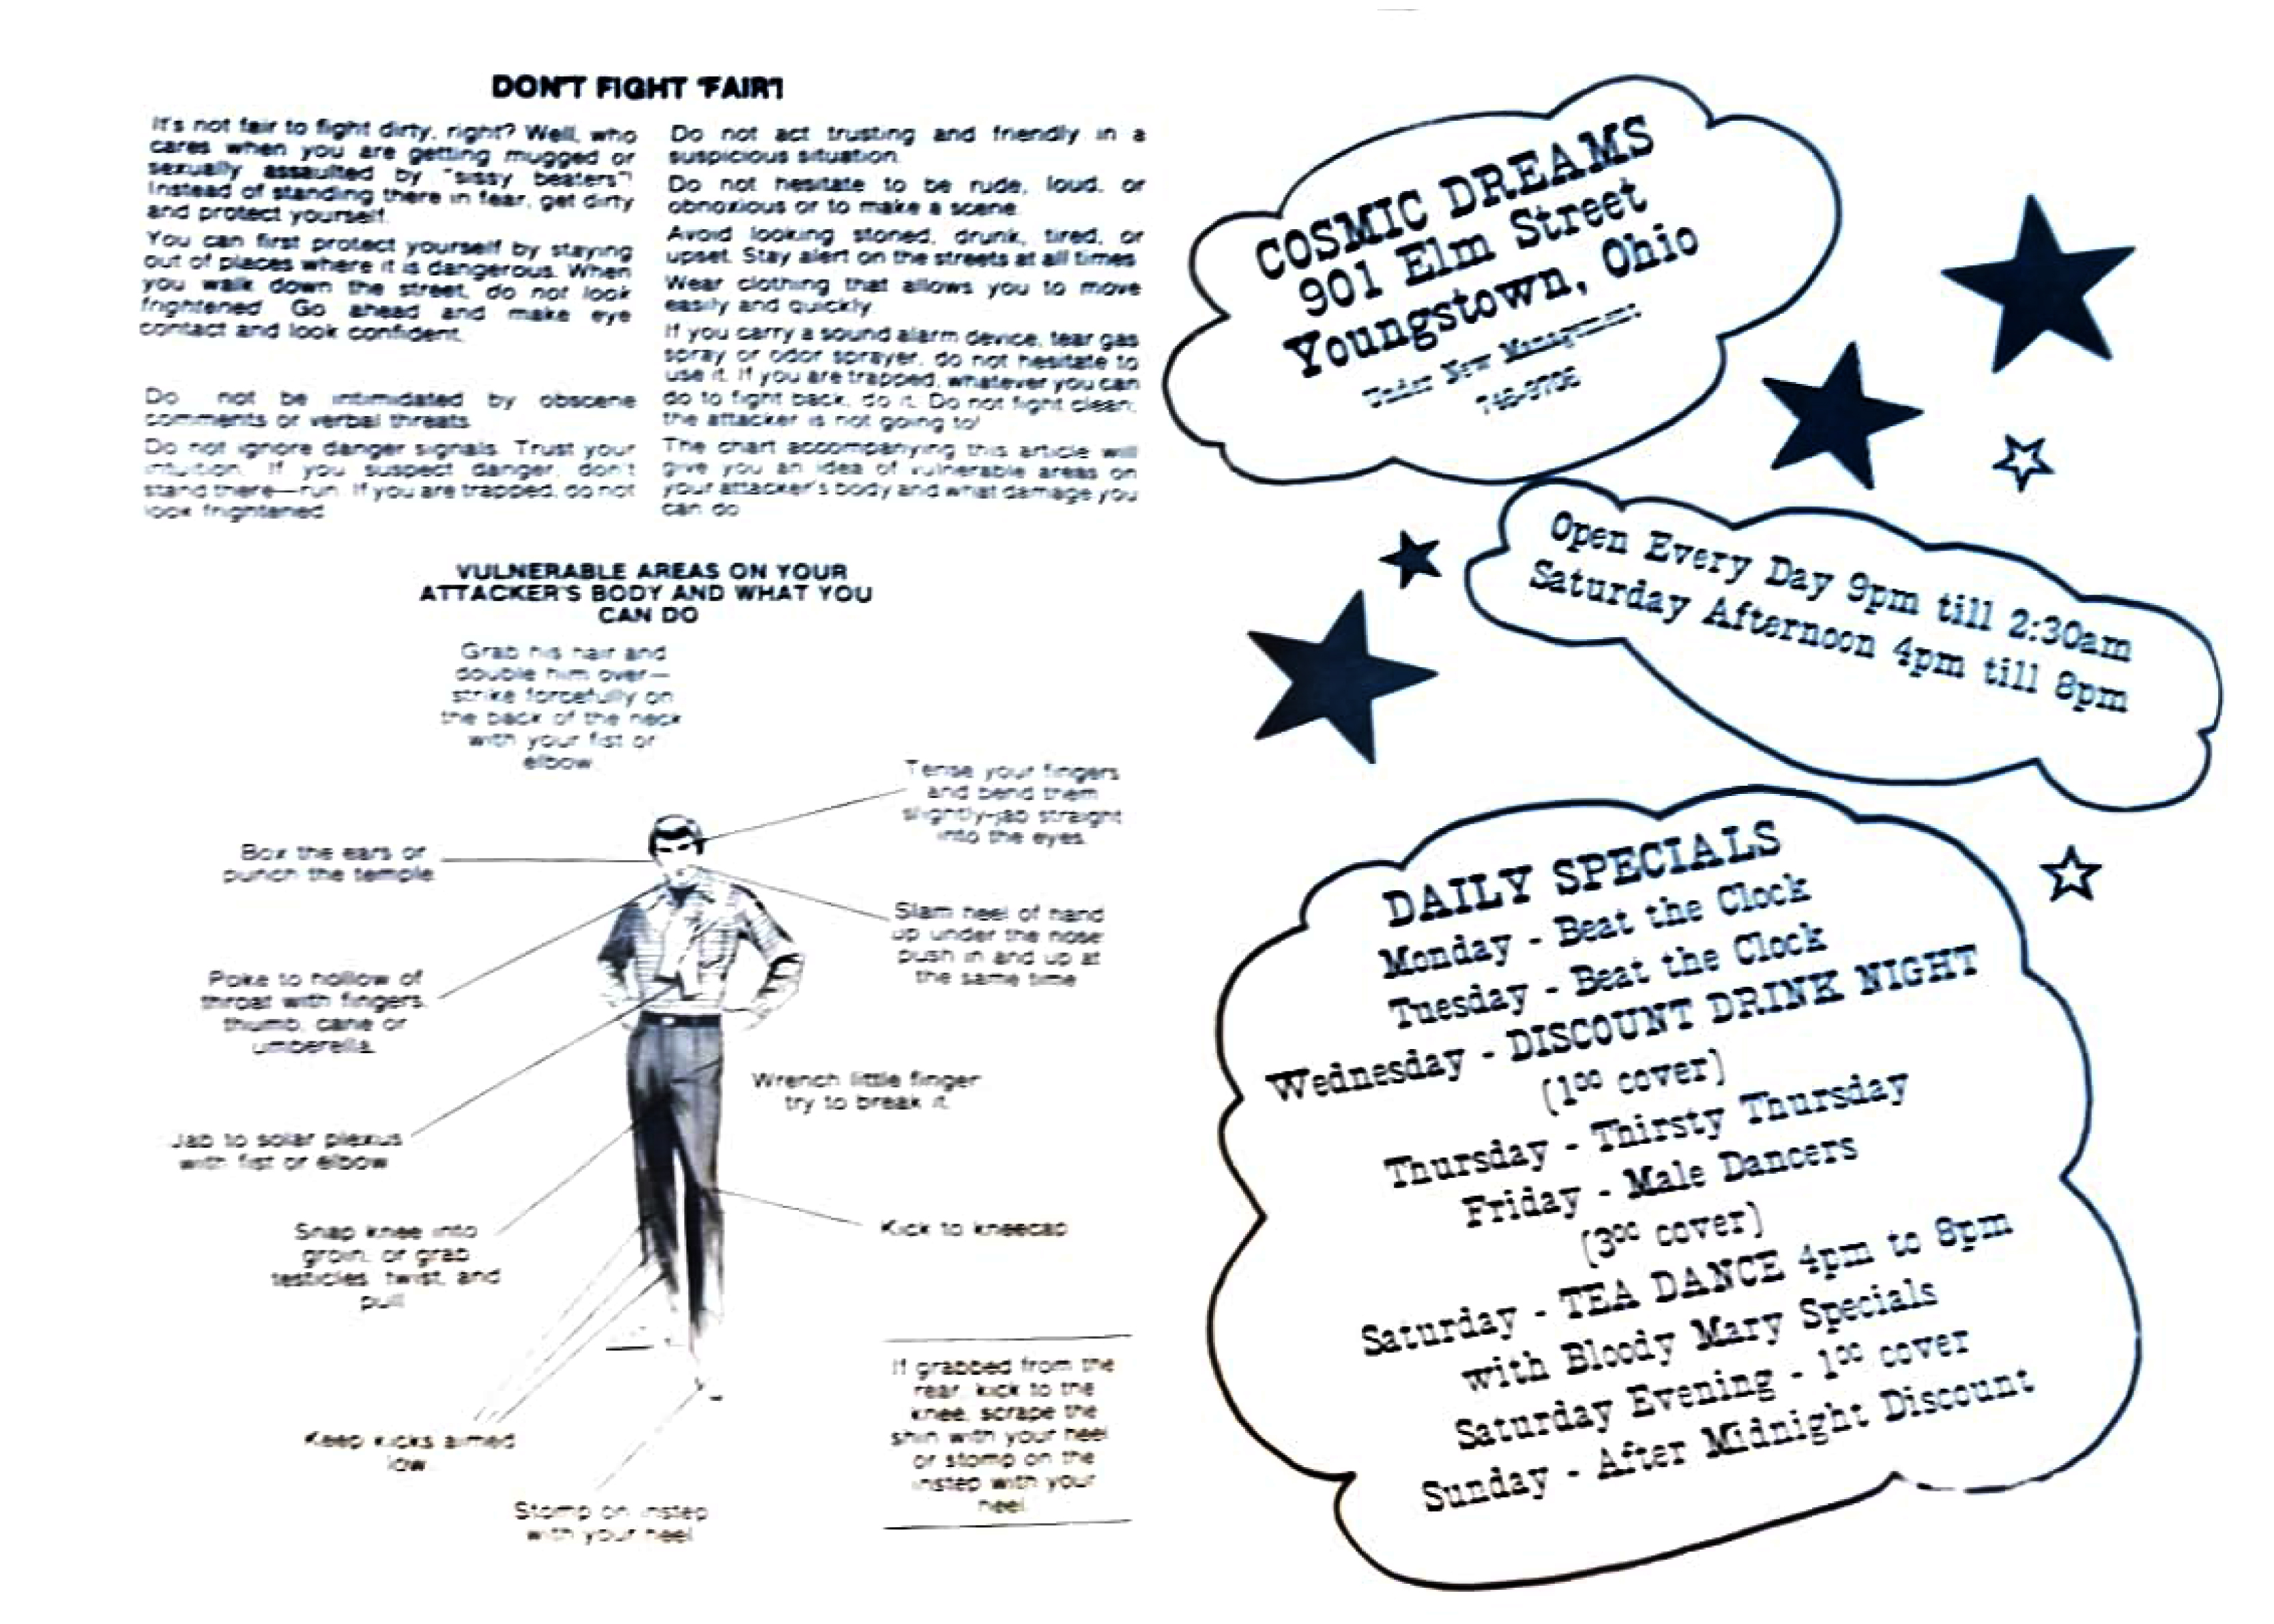 DON'T FIGHT 'FAIR'!
It's not fair to fight dirty, right? Well, who
cares when you are getting mugged or
sexually assaulted by "sissy beaters"!
Instead of standing there in fear, get dirty
and protect yourself.
You can first protect yourself by staying
out of places where it is dangerous. When
you walk down the street, do not look
frightened. Go ahead and make eye
contact and look confident.
Do not be intimidated by obscene
comments or verbal threats.
Do not ignore danger signals. Trust your
intuition. If you suspect danger, don't
stand there—run. If you are trapped, do not
look frightened.
Do not act trusting and friendly in a
suspicious situation.
Do not hesitate to be rude, loud, or
obnoxious or to make a scene.
Avoid looking stoned, drunk, tired, or
upset. Stay alert on the streets at all times.
Wear clothing that allows you to move
easily and quickly.
If you carry a sound alarm device, tear gas
spray or odor sprayer, do not hesitate to
use it. If you are trapped, whatever you can
do to fight back, do it. Do not fight clean;
the attacker is not going to!
The chart accompanying this article will
give you an idea of vulnerable areas on
your attacker's body and what damage you
can do.
VULNERABLE AREAS ON YOUR
ATTACKER'S BODY AND WHAT YOU
CAN DO
Grab his hair and
double him over—
strike forcefully on
the back of the neck
with your fist or
elbow.
Tense your fingers
and bend them
slightly-jab straight
into the eyes.
Box the ears or
punch the temple.
Slam heel of hand
up under the nose
push in and up at
the same time.
Poke to hollow of
throat with fingers,
thumb, cane or
umberella.
Wrench little finger
try to break it.
Jab to solar plexus
with fist or elbow.
Snap knee into
groin, or grab
testicles, twist, and
pull.
Kick to kneecap
Keep kicks aimed
low.
Stomp on instep
with your heel
If grabbed from the
rear, kick to the
knee, scrape the
shin with your heel
or stomp on the
instep with your
heel.
COSMIC DREAMS
901 Elm Street
Youngstown, Ohio
Under New Management
746-9706
Open Every Day 9pm till 2:30am
Saturday Afternoon 4pm till 8pm
DAILY SPECIALS
Monday - Beat the Clock
Tuesday - Beat the Clock
Wednesday - DISCOUNT DRINK NIGHT
(1⁰⁰ cover)
Thursday - Thirsty Thursday
Friday - Male Dancers
(3⁰⁰ cover)
Saturday - TEA DANCE 4pm to 8pm
with Bloody Mary Specials
Saturday Evening - 1⁰⁰ cover
Sunday - After Midnight Discount